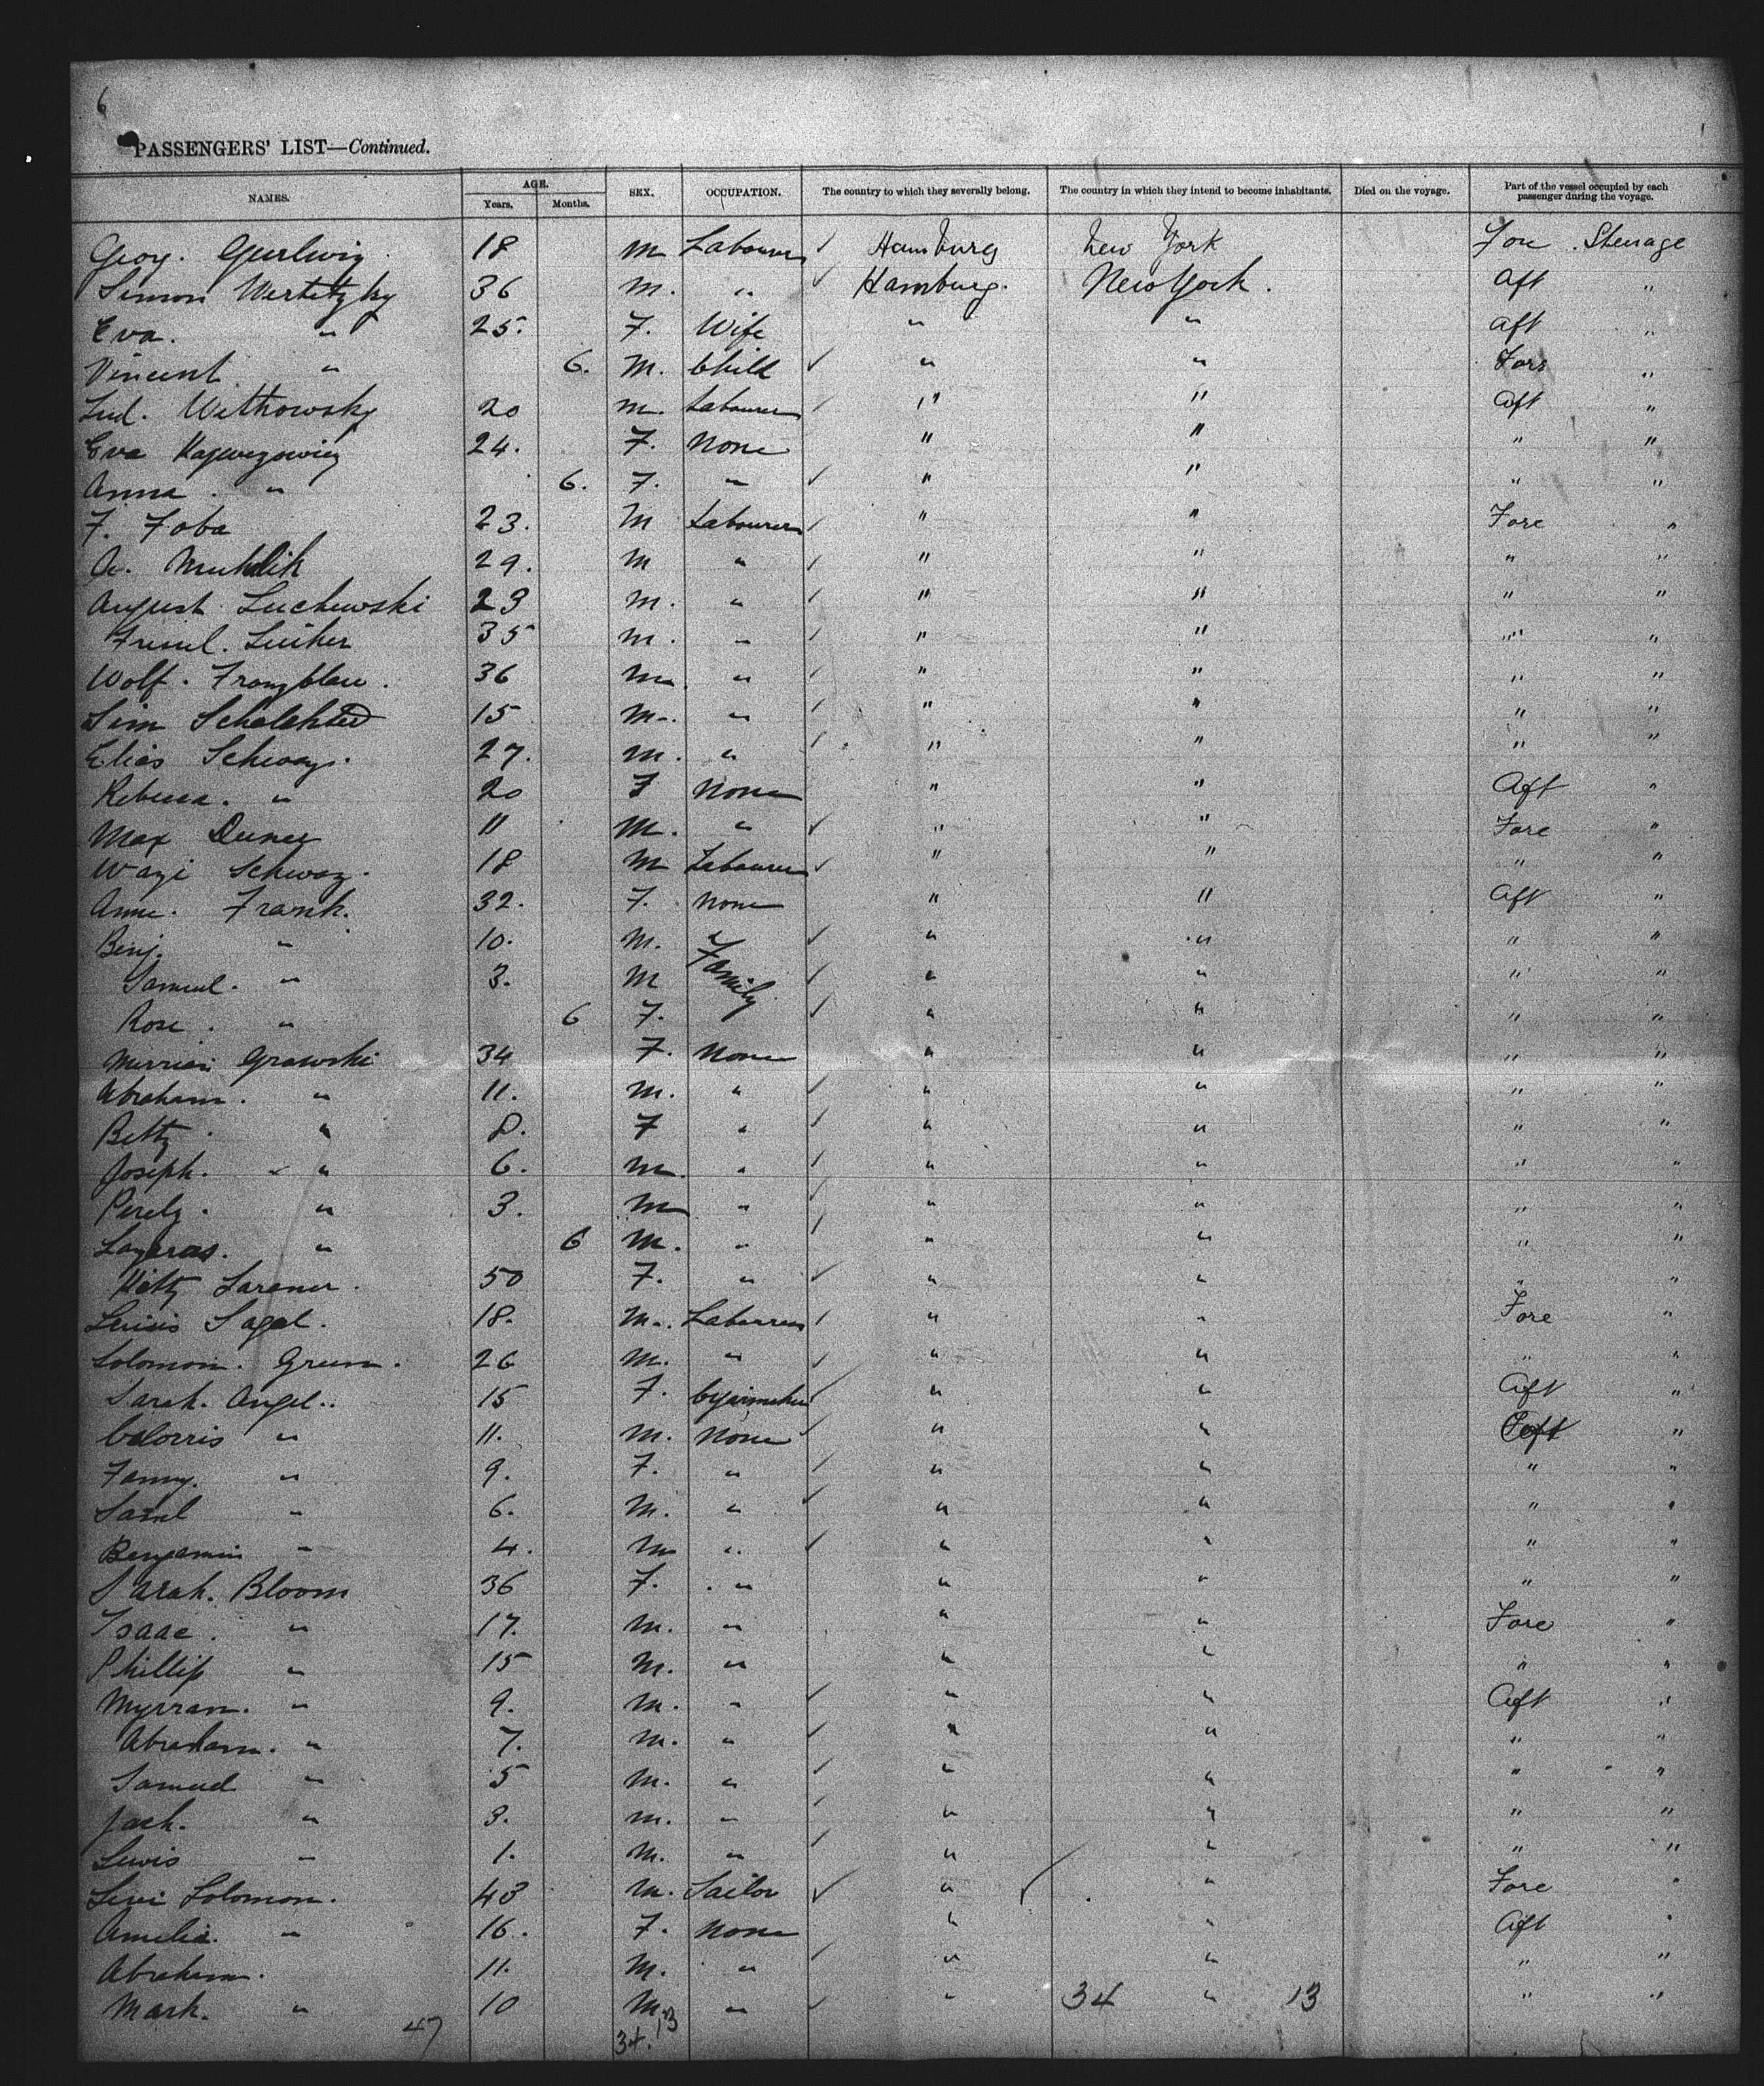 6
PASSENGERS' LIST—Continued.
NAMES. AGE. Years. Months. SEX. OCCUPATION. The country to which they severally belong. The country in which they intend to become inhabitants. Died on the voyage. Part of the vessel occupied by each passenger during the voyage.
Geog. 18 M Labourer ✓ Hamburg New York Fore Steerage
Simon Wertitzky 36 M. " ✓ Hamburg. New York. Aft "
Eva. " 25. F. Wife " " Aft "
Vincent " 6. M. Child ✓ " " Fore "
Lud. Withowsky 20 M. Labourer ✓ " " Aft "
Eva 24. F. None " " " "
Anna. " 6. F. " ✓ " " " "
F. Foba 23. M Labourer ✓ " " Fore "
A. 29. M " ✓ " " " "
August Luchewski 23 M. " ✓ " " " "
35 M. " ✓ " " " "
Wolf. Franzblau. 36 M. " ✓ " " " "
Sim 15 M. " ✓ " " " "
Elias Schwaz. 27. M. " ✓ " " " "
Rebecca. " 20 F None " " Aft "
Max 11 M. " ✓ " " Fore "
Schwaz. 18 M Labourer ✓ " " " "
Anne. Frank. 32. F. None " " Aft "
Benj. " 10. M. " ✓ " " " "
Samuel. " 3. M Family ✓ " " " "
Rose. " 6 F. ✓ " " " "
Mirriam Grawski 34 F. None " " " "
Abraham. " 11. M. " ✓ " " " "
Betty. " 8. F " ✓ " " " "
Joseph. " 6. M. " ✓ " " " "
Perelz. " 3. M " ✓ " " " "
Lazaras. " 6 M. " ✓ " " " "
Larener. 50 F. " ✓ " " " "
Sagal. 18. M. Labourer ✓ " " Fore "
Solomon. Green. 26 M. " ✓ " " " "
Sarah. Angel. 15 F. Cigarmaker ✓ " " Aft "
" 11. M. None ✓ " " Aft "
Fanny. " 9. F. " ✓ " " " "
Saml " 6. M. " ✓ " " " "
Benjamin " 4. M " ✓ " " " "
Sarah. Bloom 36 F. " " " " "
Isaac. " 17. M. " " " Fore "
Phillip " 15 M. " " " " "
Myrram. " 9. M. " ✓ " " Aft "
Abraham. " 7. M. " ✓ " " " "
Samuel " 5 M. " ✓ " " " "
Jack. " 3. M. " ✓ " " " "
Lewis " 1. M. " ✓ " " " "
Levi Solomon. 43 M. Sailor ✓ " ✓ " Fore "
Amelia. " 16. F. None " " Aft "
Abraham. 11. M. " ✓ " " " "
Mark. " 10 M. " ✓ " 34 " 13 " "
47 34. 13